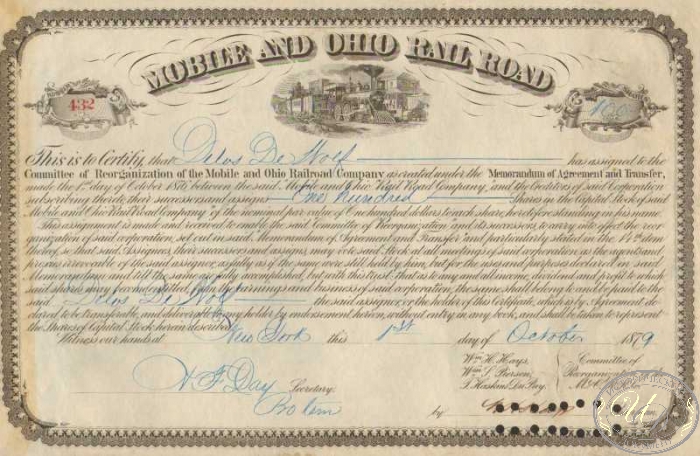 MOBILE AND OHIO RAIL ROAD
432
100
This is to Certify, that Delos De Wolf has assigned to the
Committee of Reorganization of the Mobile and Ohio Railroad Company as created under the Memorandum of Agreement and Transfer,
made the 1st day of October 1876 between the said Mobile and Ohio Rail Road Company, and the Creditors of said Corporation
subscribing thereto their successors and assigns One Hundred Shares in the Capital Stock of said
Mobile and Ohio Rail Road Company of the nominal par value of One hundred dollars to each share, heretofore standing in his name.
This assignment is made and received to enable the said Committee of Reorganization and its successors, to carry into effect the reor-
ganization of said corporation, set out in said Memorandum of Agreement and Transfer and particularly stated in the 14th item
thereof, so that said Assignees, their successors and assigns, may vote said Stock at all meetings of said corporation as the
Memorandum and till the same are fully accomplished, but with this trust that as to any and all income, dividend and profit to which
said shares may be entitled from the earnings and business of said corporation, the same shall belong to and be paid to the
said Delos De Wolf the said assignor or the holder of this Certificate, which is by Agreement de-
clared to be transferable, and deliverable to any holder by endorsement hereon, without entry in any book, and shall be taken to represent
the Shares of Capital Stock herein described.
Witness our hands at New York this 1st day of October 1879
Wm. H. Hays
Wm. S. Pierson
Committee of
Reorganization
H. F. Day Secretary.
Pro tem
by